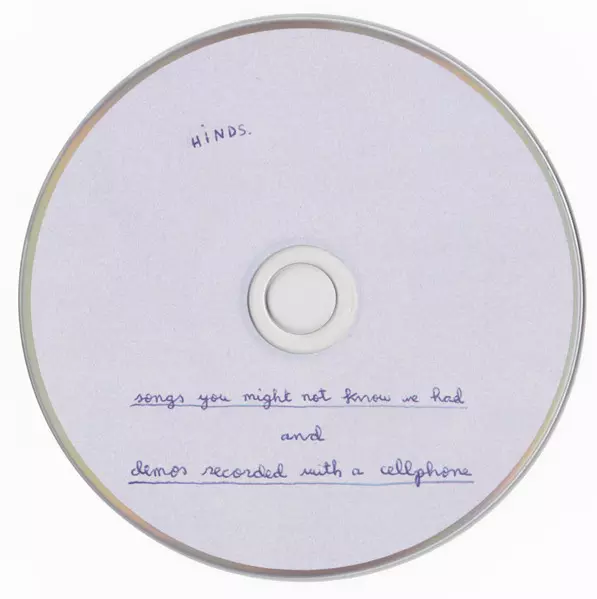 HiNDS.
songs you might not know we had
and
demos recorded with a cellphone